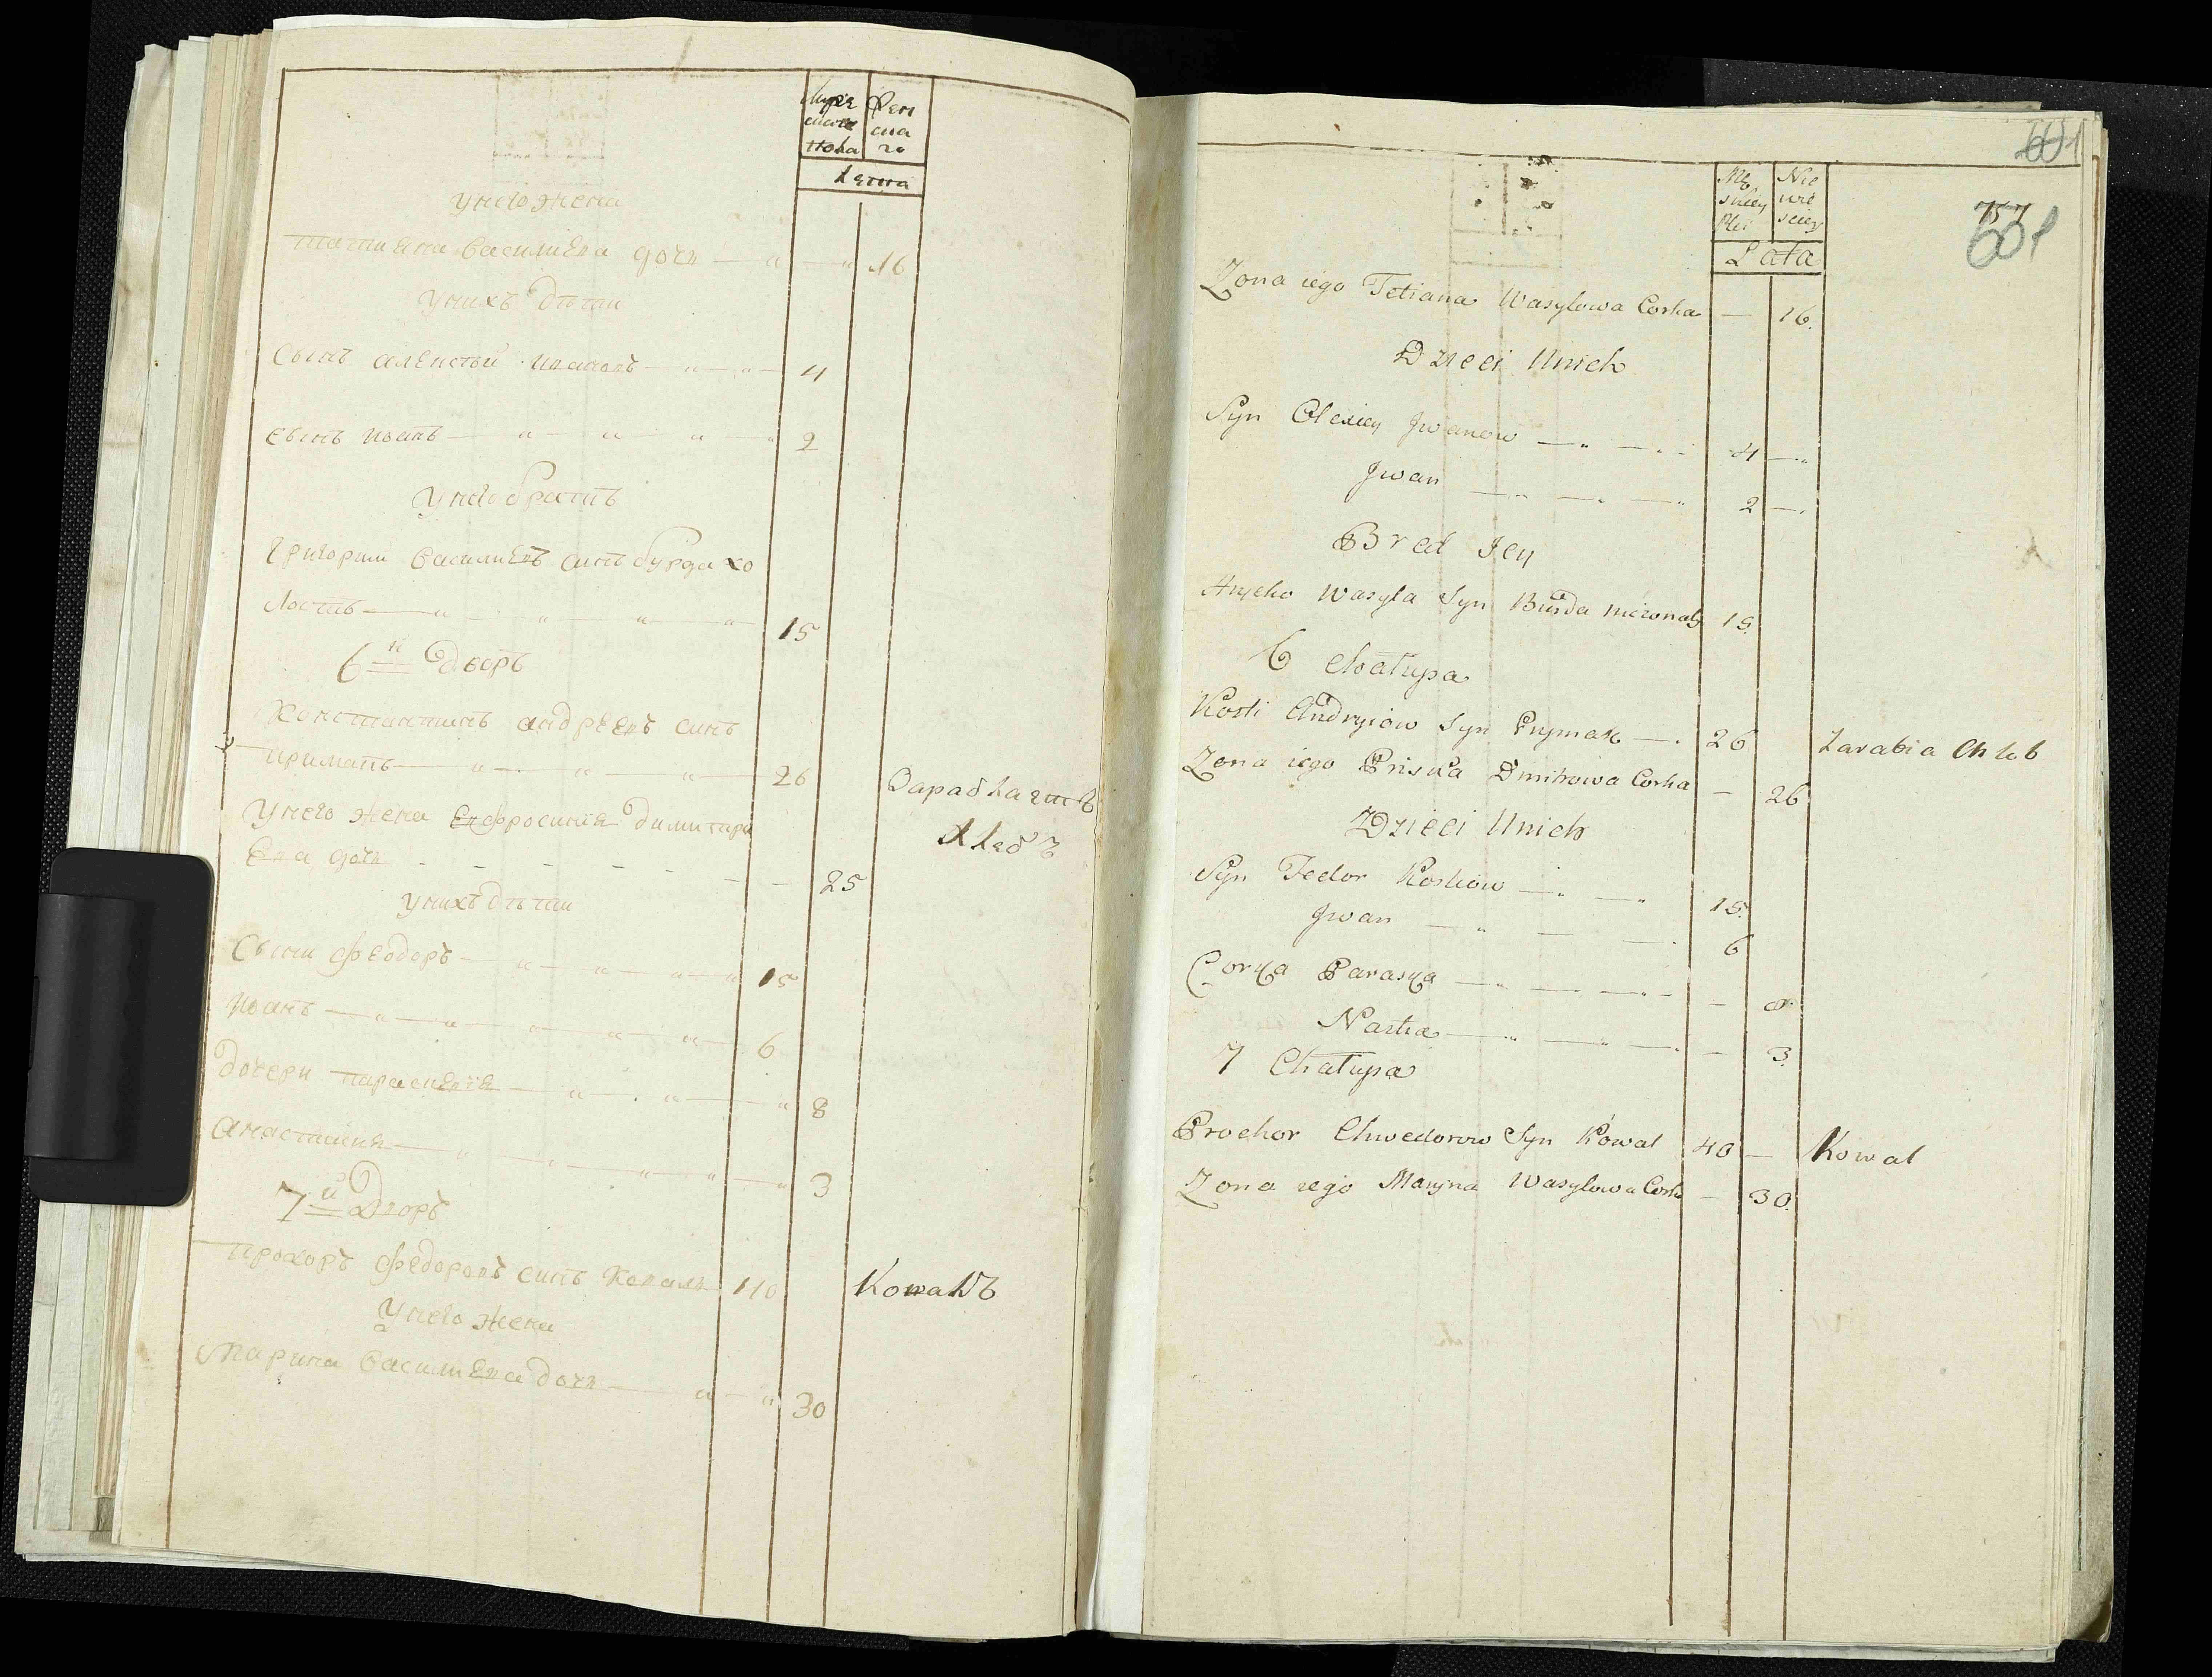 лѣта
У него жена
Татияна Василиева дочь — " — " 16
У них дѣти
Сынъ Алексѣй Ивановъ — " — " — 4
Сынъ Иванъ — " — " — " — " 2
У него братъ
Григории Василиевъ синъ бурда хо
лостъ — " — " — " — " — 15
6й Дворъ
Константинъ андрѣевъ синъ
примакъ — " — " — " — 26 Зарабляетъ
У него жена Евфросиния димитри
ева дочь - - - - - - 25 Хлебъ
У нихъ дѣти
Сыни Феодоръ — " — " — " — " 15
Иванъ — " — " — " — " — " 6
Дочери параскевия — " — " — " 8
Анастасия — " — " — " — " — " 3
7й Дворъ
Прохоръ Федоровъ синъ Коваль 40 Коваль
У него жена
Марина Василиева дочь — " — " 30
601
757
601
Mę skiey Płci
Nie wie sciey
Lata
Zona iego Tetiana Wasylowa Corka — 16.
Dzieci Unich
Syn Olexiey Jwanow — " — 4 — "
Jwan — " — " — " 2 —
Brat Jey
Hryćko Wasyla Syn Burda niezonaty 15.
6 Chałupa
Kosti Andryiow Syn Prymak — . 26 Zarabia Chleb
Zona iego Priska Dmitrowa Corka — 26
Dzieci Unich
Syn Fedor Kostiow — " — " 15.
Jwan — " — — 6
Corka Paraska — " — " — " — 8
Nastia — " — " — " — 3.
7 Chałupa
Prochor Chwedorow Syn Kowal 40 — Kowal
Zona iego Maryna Wasylowa Corka — 30.